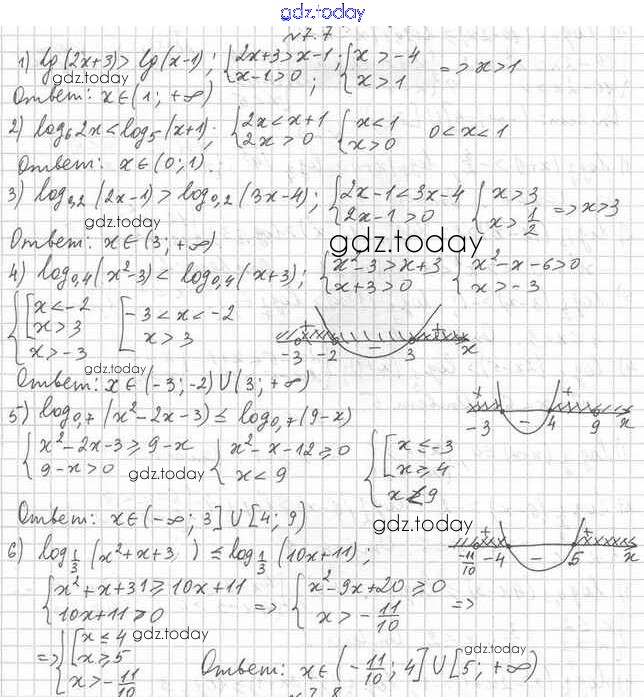 gdz.today
№7.7
1) lg(2x+3) > lg(x-1); { 2x+3 > x-1 ; x-1 > 0 ; { x > -4 ; x > 1 => x > 1
gdz.today
Ответ: x∈(1; +∞)
2) log₆2x < log₅(x+1); { 2x < x+1 ; 2x > 0 { x < 1 ; x > 0 0 < x < 1
Ответ: x∈(0; 1).
gdz.today
3) log₀,₂(2x-1) > log₀,₂(3x-4); { 2x-1 < 3x-4 ; 2x-1 > 0 { x > 3 ; x > 1/2 => x > 3
gdz.today
Ответ: x∈(3; +∞)
gdz.today
4) log₀,₄(x²-3) < log₀,₄(x+3); { x²-3 > x+3 ; x+3 > 0 { x²-x-6 > 0 ; x > -3
{ [ x < -2 ; x > 3 ; x > -3 [ -3 < x < -2 ; x > 3
+ - + -3 -2 3 x
gdz.today
Ответ: x∈(-3; -2)∪(3; +∞)
5) log₀,₇(x²-2x-3) ≤ log₀,₇(9-x)
+ - + -3 4 9 x
{ x²-2x-3 ≥ 9-x ; 9-x > 0 { x²-x-12 ≥ 0 ; x < 9 { [ x ≤ -3 ; x ≥ 4 ; x < 9
gdz.today
Ответ: x∈(-∞; 3]∪[4; 9)
gdz.today
6) log₁/₃(x²+x+3 ) ≤ log₁/₃(10x+11);
+ - + -11/10 -4 5 x
{ x²+x+31 ≥ 10x+11 ; 10x+11 > 0 => { x²-9x+20 ≥ 0 ; x > -11/10 =>
=> { [ x ≤ 4 ; x ≥ 5 ; x > -11/10
gdz.today
gdz.today
Ответ: x∈(-11/10; 4]∪[5; +∞)